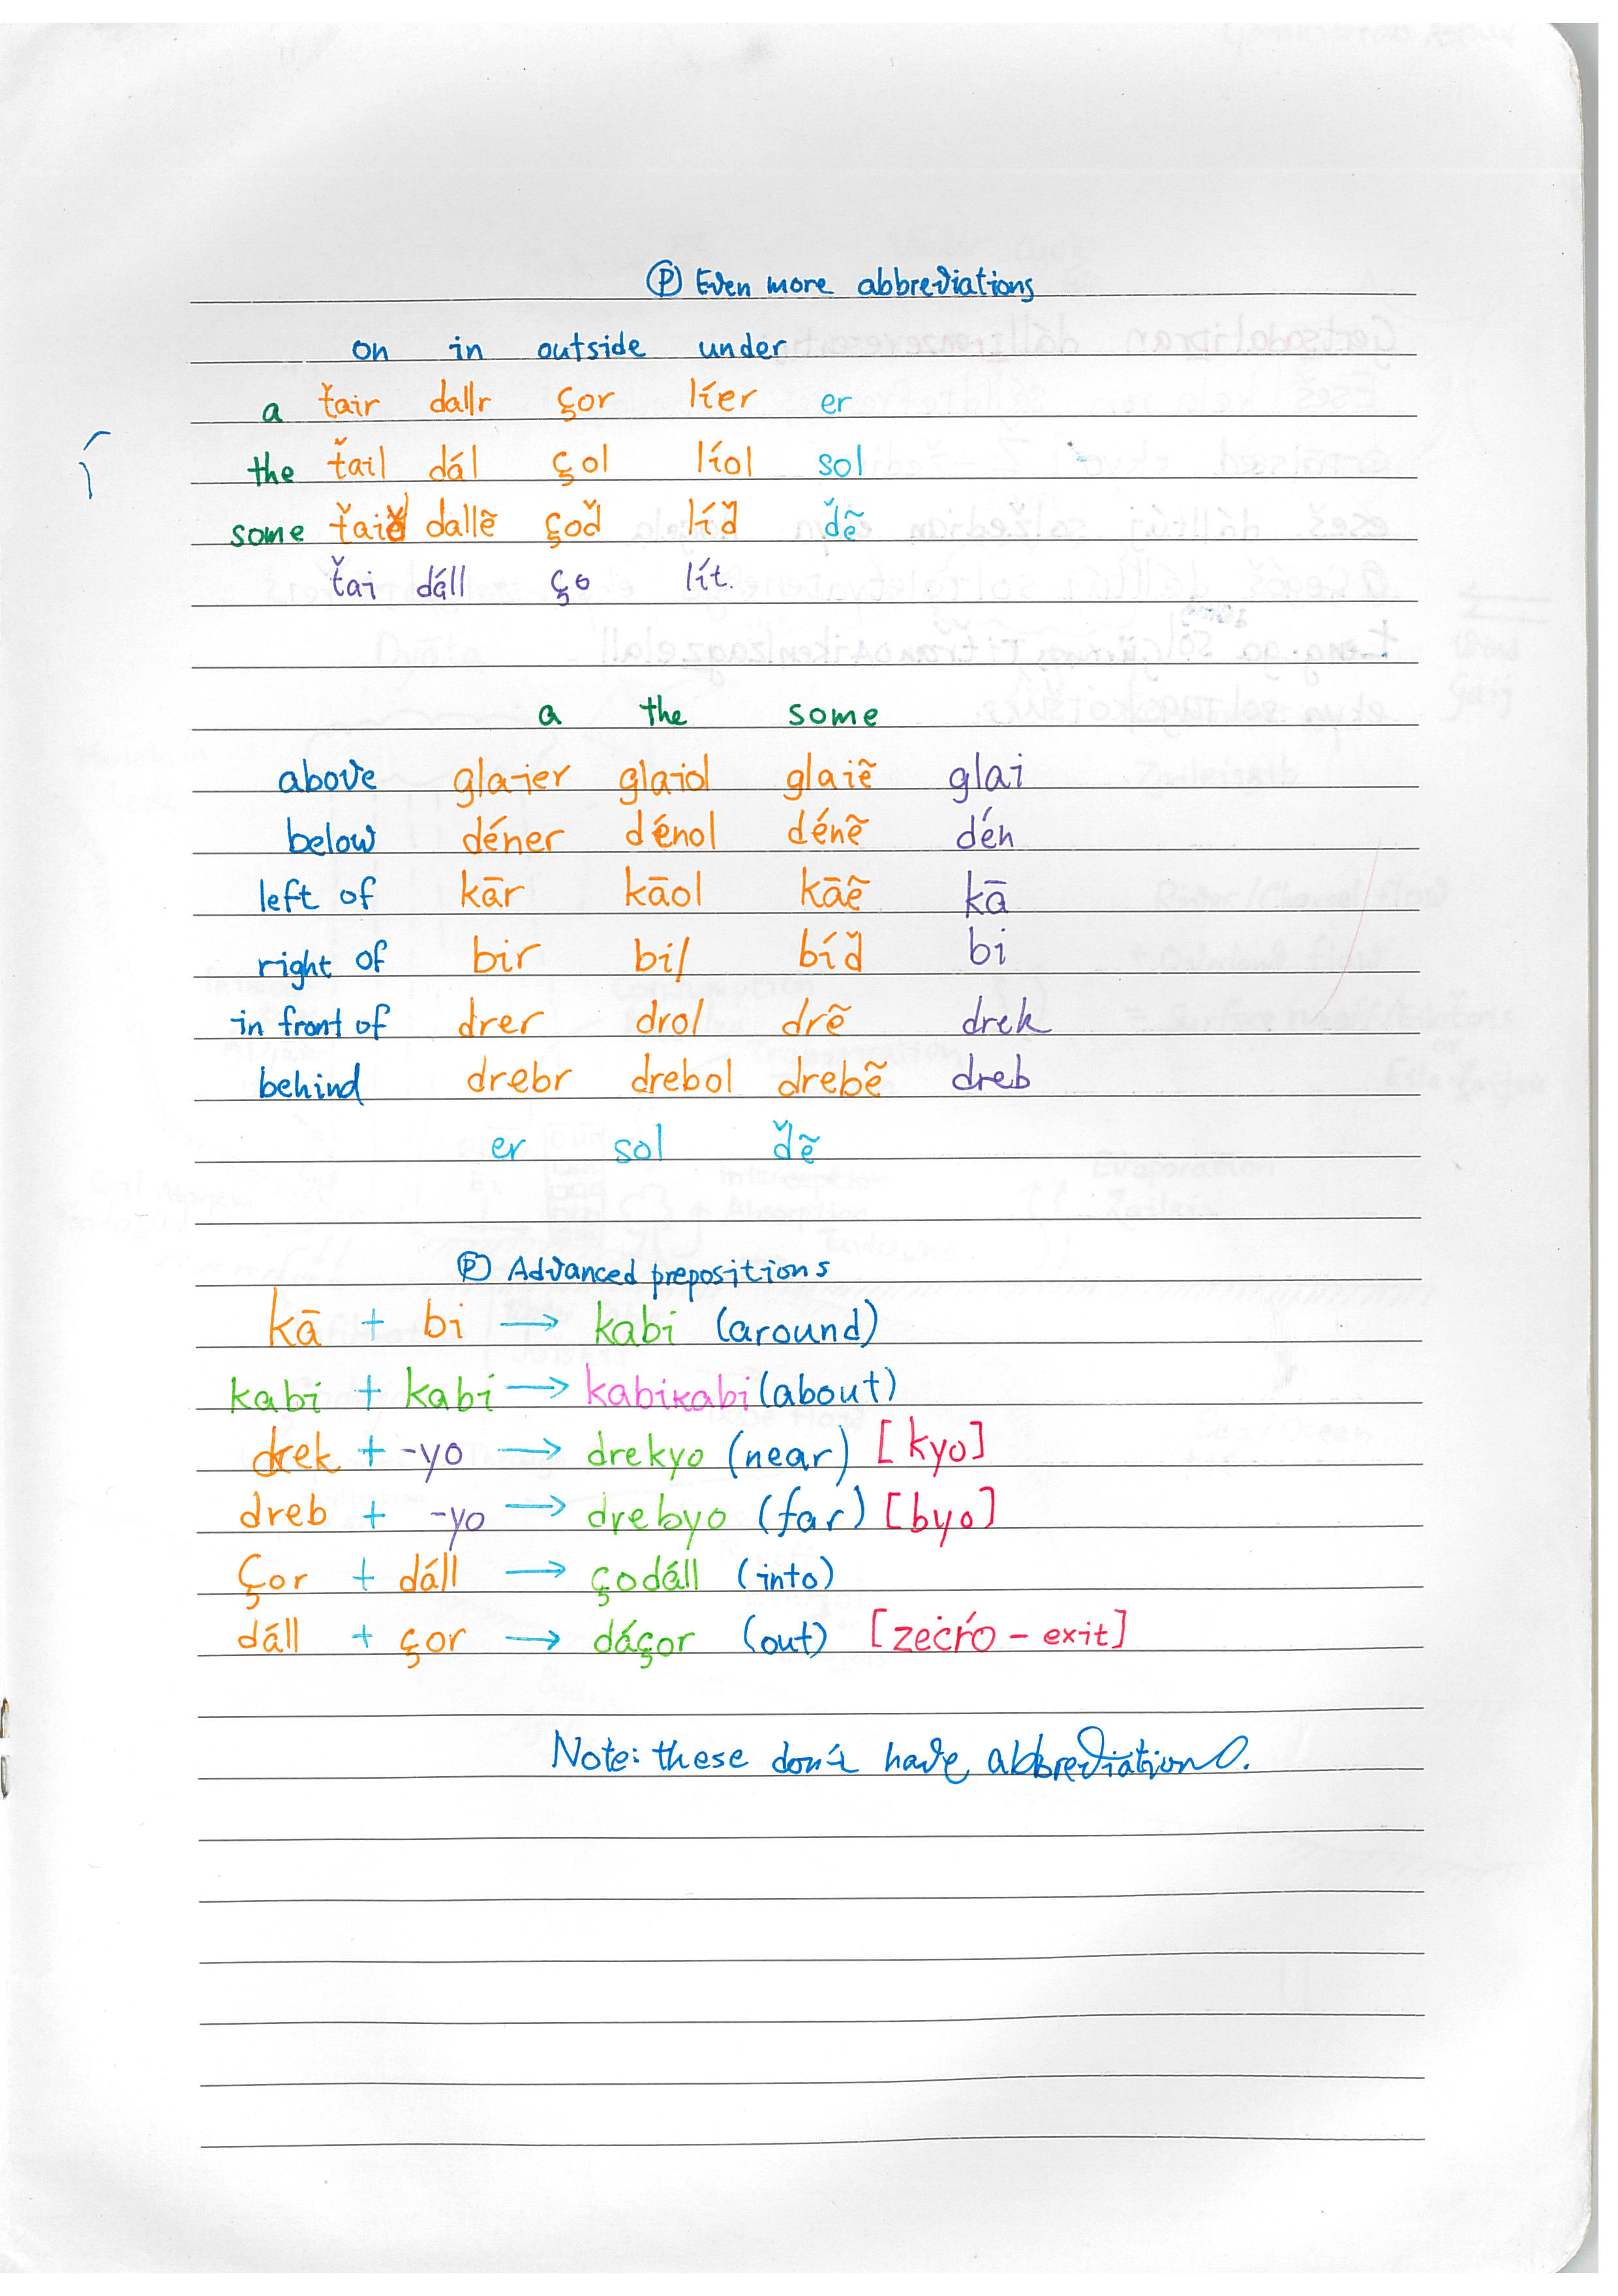 Ⓟ Even more abbreviations
on in outside under
a ťair dallr çor líer er
the ťail dál çol líol sol
some ťaiď dallẽ çoď líď ďẽ
ťai dáll ço lít.
a the some
above glaier glaiol glaiẽ glai
below déner dénol dénẽ dén
left of kār kāol kāẽ kā
right of bir bil bíď bi
in front of drer drol drẽ drek
behind drebr drebol drebẽ dreb
er sol ďẽ
Ⓟ Advanced prepositions
kā + bi → kabi (around)
kabi + kabi → kabikabi (about)
drek + -yo → drekyo (near) [kyo]
dreb + -yo → drebyo (far) [byo]
Çor + dáll → çodáll (into)
dáll + çor → dáçor (out) [zećŕo - exit]
Note: these don't have abbreviations.